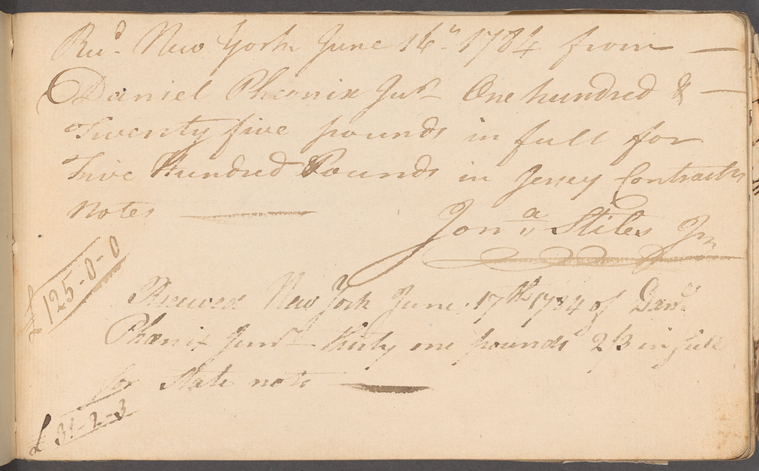 Recd. New York June 16th 1784 from
Daniel Phoenix Junr One hundred &
Twenty five pounds in full for
Five Hundred Pounds in Jersey Contracts
Notes
Jona. Stiles Jn
£125-0-0
Receved New York June 17th 1784 of Danl.
Phœnix Junr thirty one pounds 2/3 in full
for State notes
£31-2-3